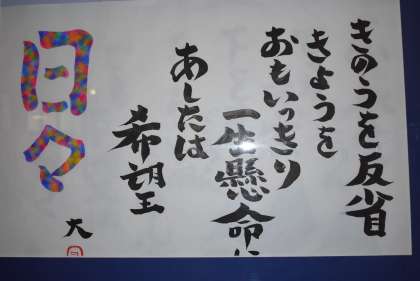 きのうを反省
きょうを
おもいっきり
一生懸命に
あしたは
希望
日々
大